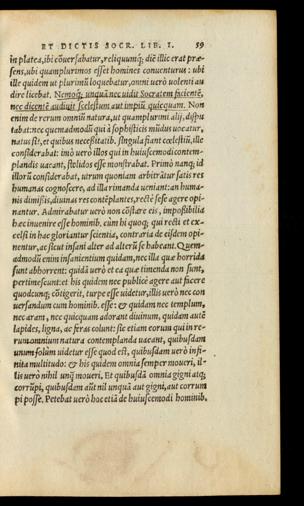 ET DICTIS SOCR. LIB. I. 59
in platea, ibi cōuersabatur, reliquumq́; diē illic erat præ-
sens, ubi quamplurimos esset homines conuenturus: ubi
ille quidem ut plurimū loquebatur, omni uerò uolenti au
dire licebat. Nemoq́; unquā nec uidit Socratem faciētē,
nec dicentē audiuit scelestum aut impiū quicquam. Non
enim de rerum omniū natura, ut quamplurimi alij, dispu
tabat: nec quemadmodū qui à sophisticis mūdus uocatur,
natus sit, et quibus necessitatib. singula fiant cœlestiū, ille
considerabat: imò uerò illos qui in huiuscemodi contem-
plandis uacant, stolidos esse monstrabat. Primò nanq; id
illorū considerabat, utrum quoniam arbitrātur satis res
humanas cognoscere, ad illa rimanda ueniant: an huma-
nis dimissis, diuinas res contēplantes, rectè sese agere opi-
nantur. Admirabatur uerò non cōstare eis, impossibilia
hæc inuenire esse hominib. cùm hi quoq; qui recti et ex-
celsi in hac gloriantur scientia, contraria de eisdem opi-
nentur, ac sicut insani alter ad alterū se habeant. Quem-
admodū enim insanientium quidam, nec illa quæ horrida
sunt abhorrent: quidā uerò et ea quæ timenda non sunt,
pertimescunt: et his quidem nec publicè agere aut facere
quodcunq; cōtigerit, turpe esse uidetur, illis uerò nec con
uersandum cum hominib. esse: & quidam nec templum,
nec arant, nec quicquam adorant diuinum, quidam autē
lapides, ligna, ac feras colunt: sic etiam eorum qui in re-
rum omnium natura contemplanda uacant, quibusdam
unum solùm uidetur esse quod est, quibusdam uerò infi-
nita multitudo: & his quidem omnia semper moueri, il-
lis uerò nihil unq̄ moueri. Et quibusdā omnia gigni atq;
corrūpi, quibusdam aūt nil unquā aut gigni, aut corrum
pi posse. Petebat uerò hoc etiā de huiuscemodi hominib.